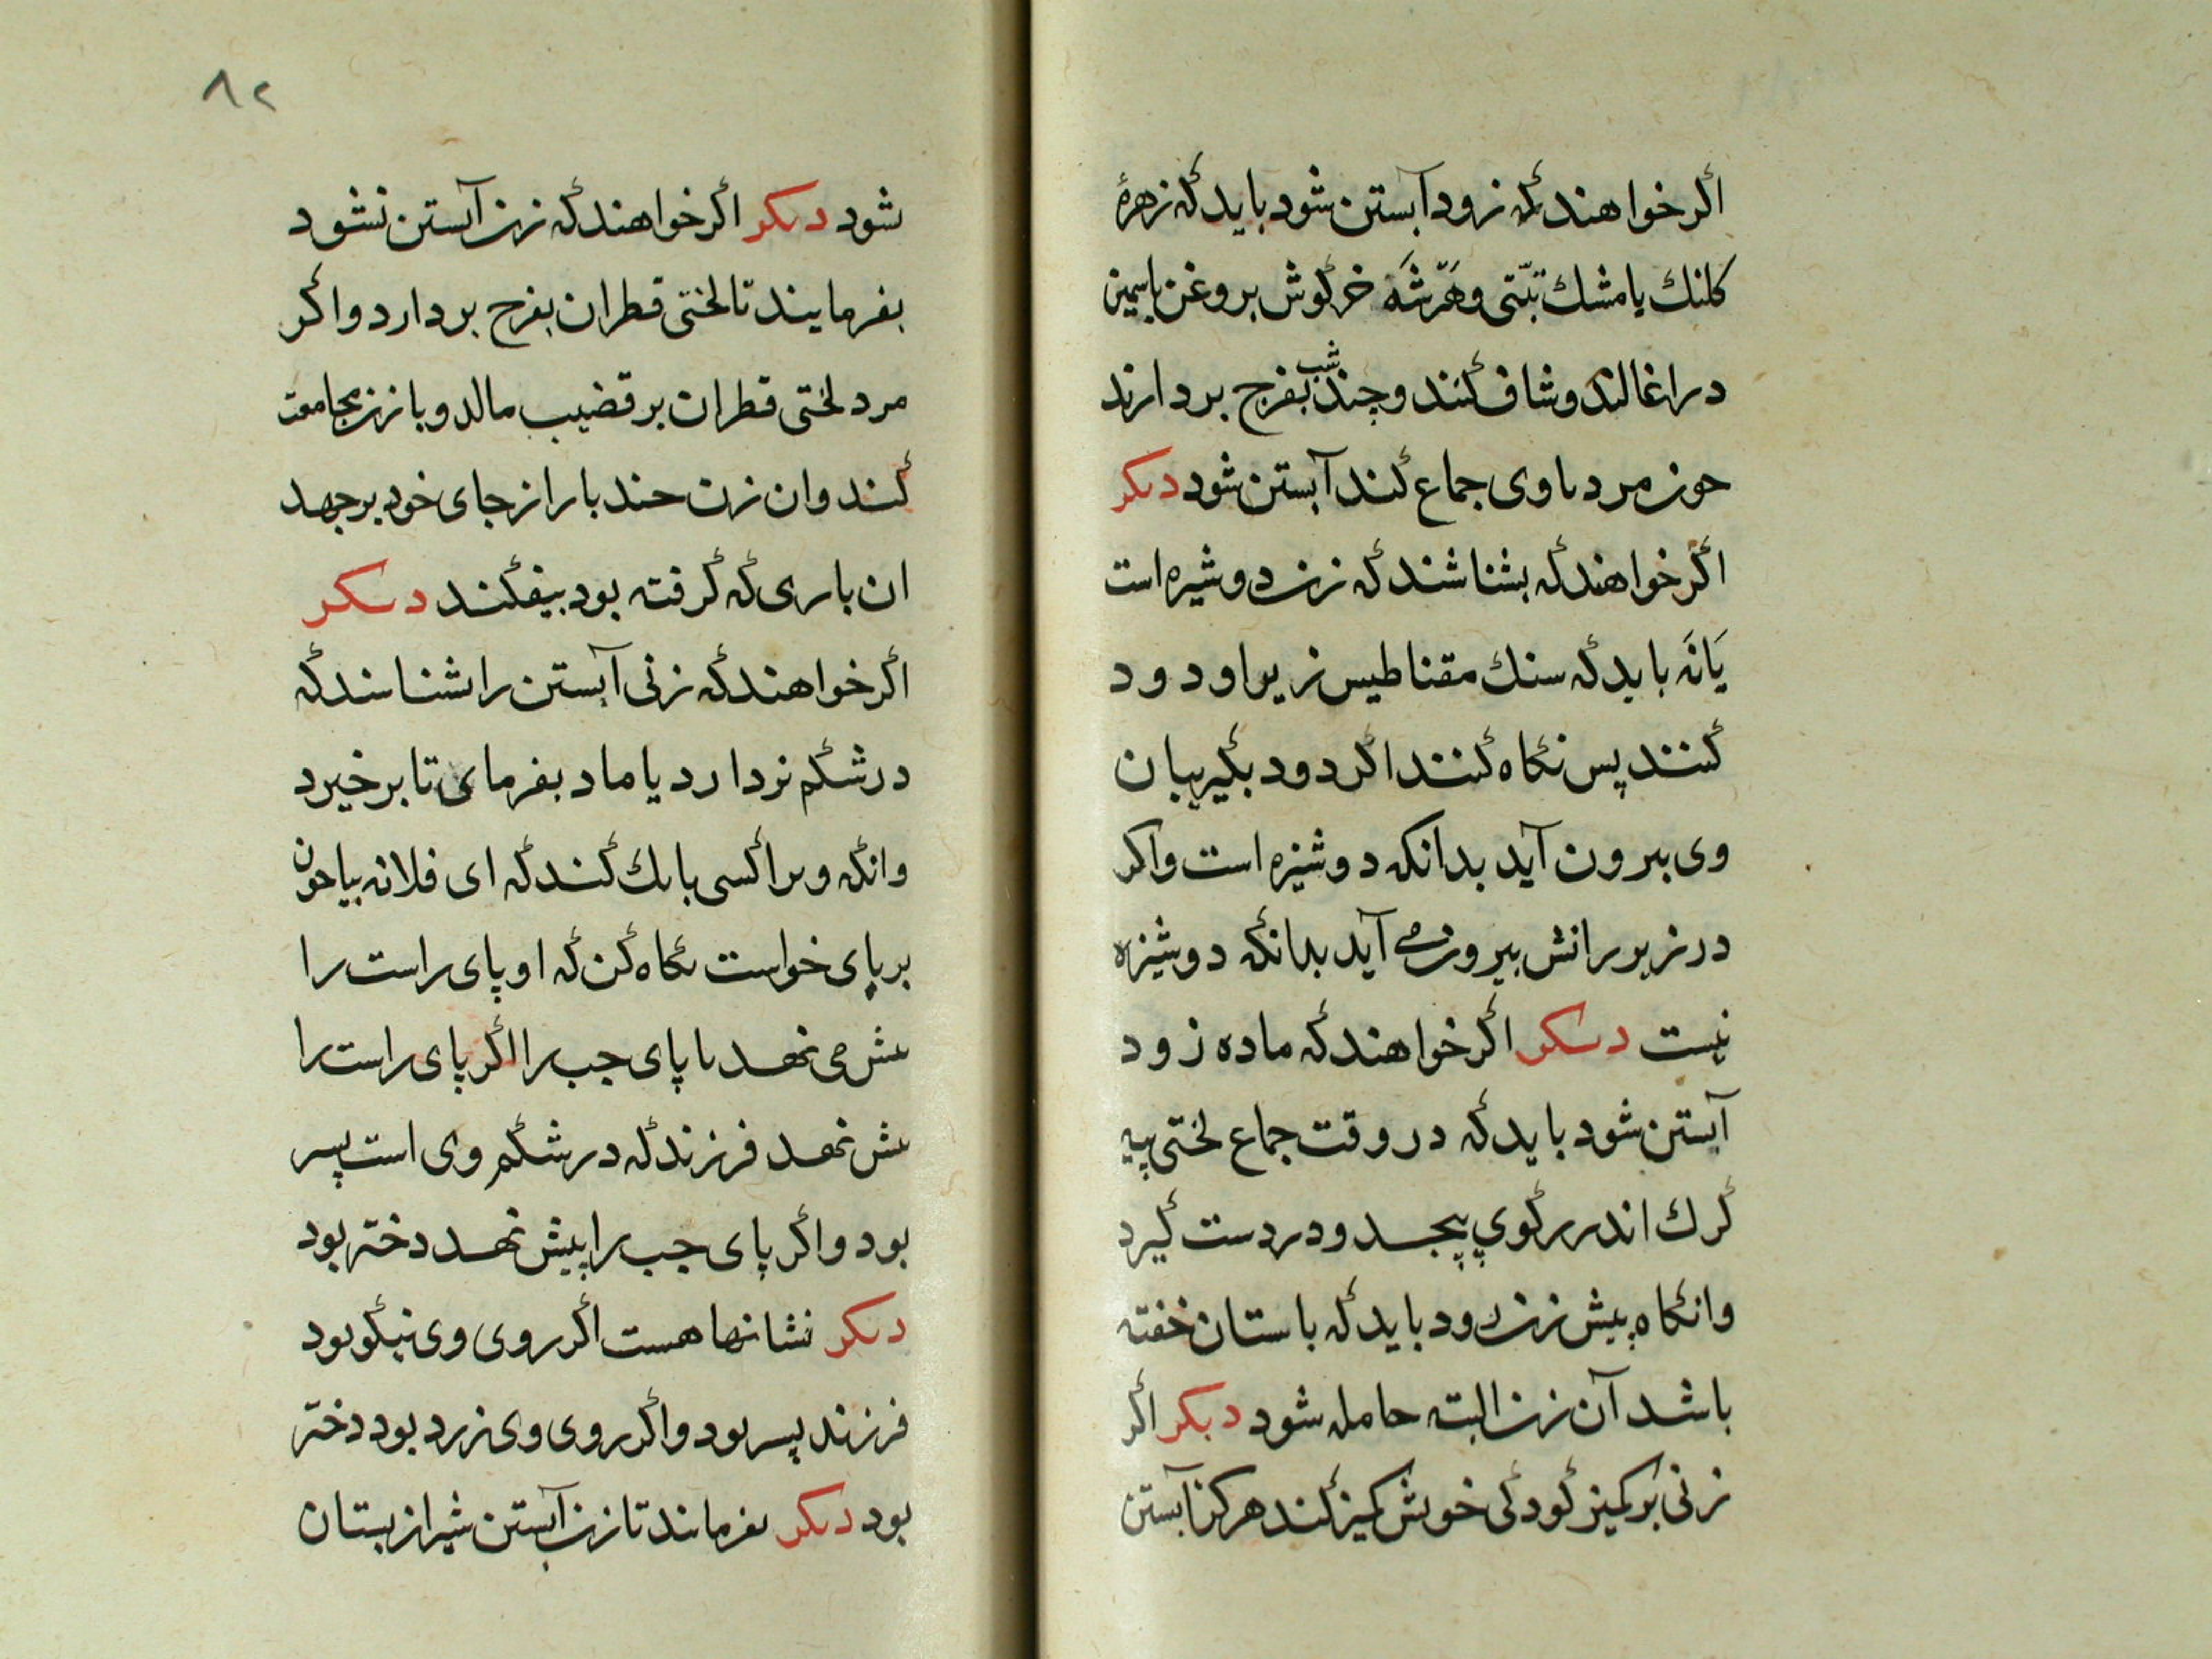 اگر خواهند که زود آبستن شود باید که زهرهٔ
کلنك یا مشك تبّتی و هَرّشَه خرگوش بروغن یاسمین
دراغالند و شاف کنند و چند شب بفرج بردارند
چون مرد با وی جماع کند آبستن شود دیکر
اگر خواهند که بشناشند که زن دوشیره است
یَا نَه باید که سنك مقناطیس زیر او دود
کنند پس نگاه کنند اگر دود بگریبان
وی بیرون آید بدانکه دوشیزه است واکر
در زیر رانش بیرون می آید بدانکه دوشیزه
نیست دیکر اگر خواهند که ماده زود
آبستن شود باید که در وقت جماع لختی پیه
گرك اندر رگوی پیجد و در دست گیرد
وانگاه پیش زن رود باید که باستان خفته
باشد آن زن البته حامله شود دیکر اگر
زنی بر کمیز گودکی خویش کمیز کند هرکز آبستن
۸۲
شود دیکر اگر خواهند که زن آبستن نشود
بفرمایند تا لختی قطران بفرج بردارد و اگر
مرد لختی قطران بر قضیب مالد و با زن مجامعت
کند وان زن حند بار از جای خود برجهد
ان باری که گرفته بود بیفکند دیکر
اگر خواهند که زنی آبستن را بشناسند که
در شکم نر دارد یا ماد بفرمای تا برخیرد
وانکه ویرا کسی بانك کند که ای فلانه بیا حون
بر پای خواست نگاه کن که او پای راست را
پیش می نهد یا پای جب را اگر پای راست را
پیش نهد فرزند که در شکم وی است پسر
بود و اگر پای جب را پیش نهد دختر بود
دیکر نشانها هست اگر روی وی نیکو بود
فرزند پسر بود و اگر روی وی زرد بود دختر
بود دیکر بفرمایند تا زن آبستن شیر از بستان